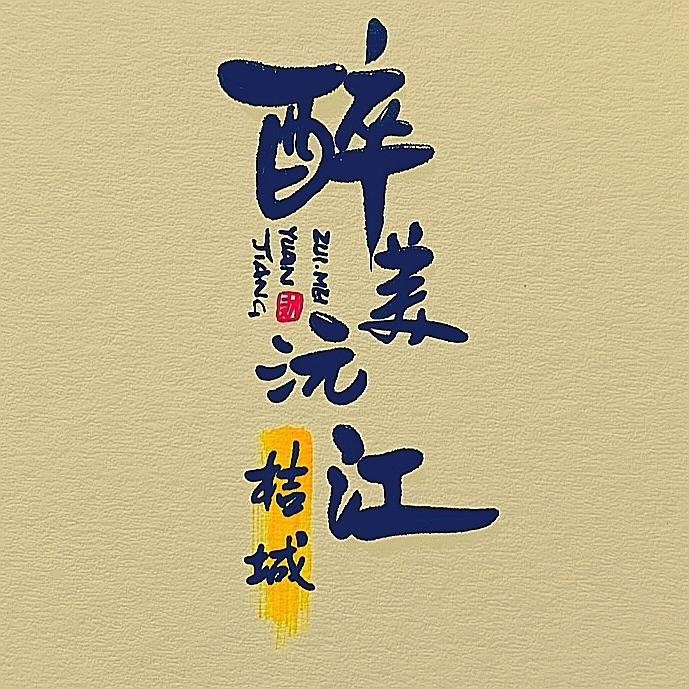 醉美沅江
ZUI.MEI
YUAN
JIANG
桔城